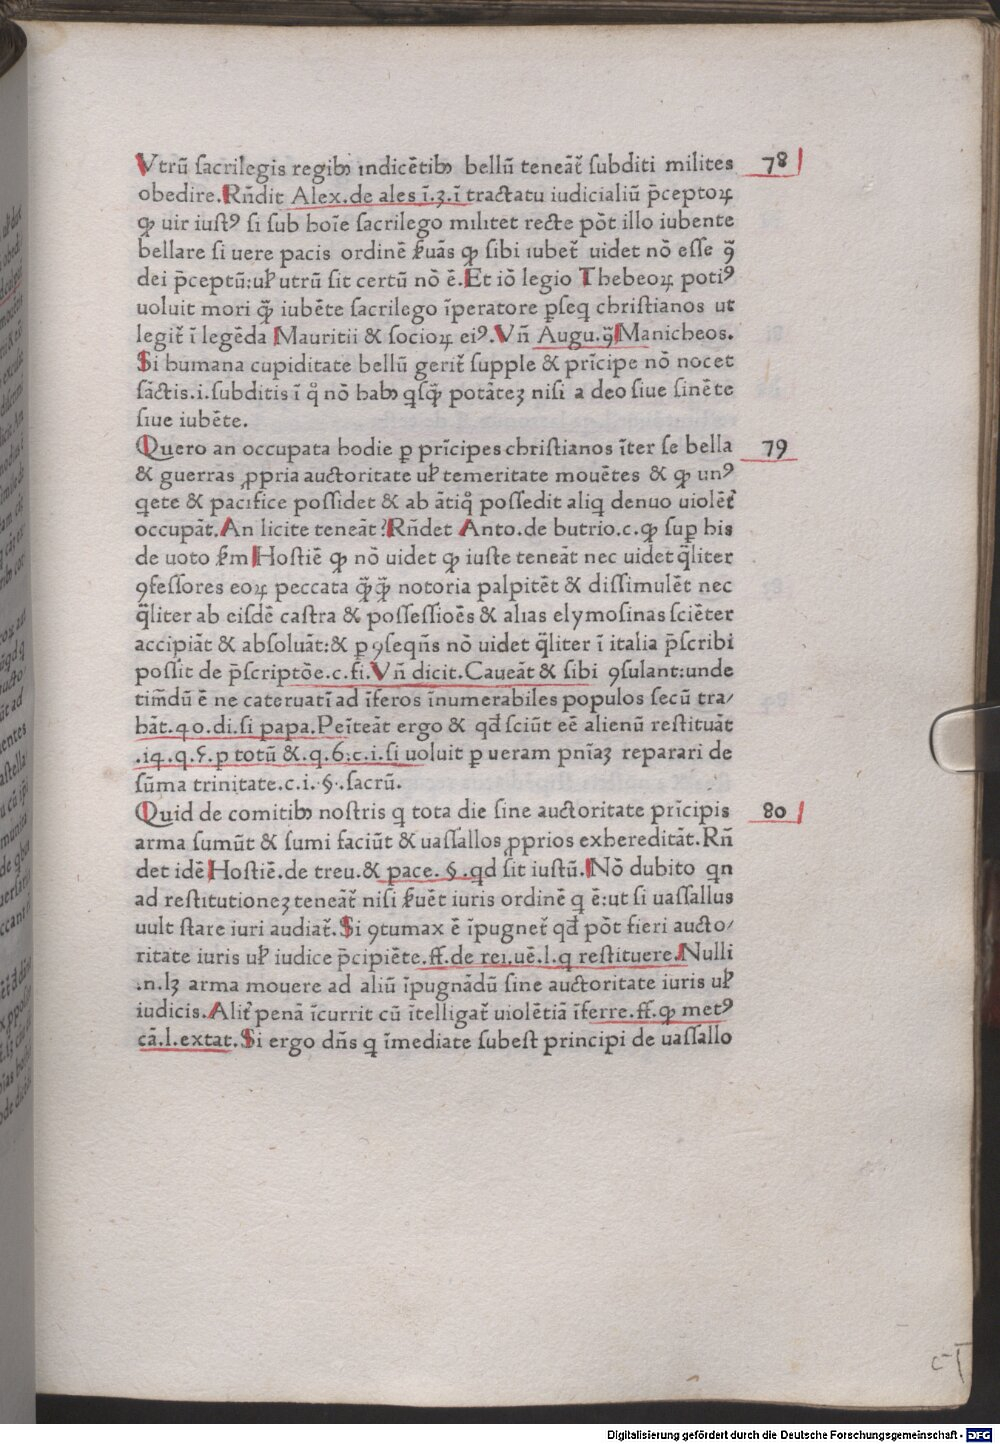 Vtrū sacrilegis regibꝫ indicētibꝫ bellū teneāt᷑ subditi milites 78
obedire.Rn̄dit Alex.de ales ī.3.ī tractatu iudicialiū p̄ceptoꝝ
ꝙ uir iustꝰ si sub hoīe sacrilego militet recte pōt illo iubente
bellare si uere pacis ordinē ẜuās ꝙ sibi iubet᷑ uidet nō esse ꝯ̄
dei p̄ceptū:uꝉ utrū sit certū nō ē.Et iō legio Thebeoꝝ potiꝰ
uoluit mori ꝙ̄ iubēte sacrilego īperatore ꝑseq christianos ut
legit᷑ ī legēda Mauritii & socioꝝ eiꝰ.Vn̄ Augu.ꝯ̄ Manicheos.
Si humana cupiditate bellū gerit᷑ supple & prīcipe nō nocet
sāctis.i.subditis ī q̊ nō habꝫ qsꝙ̄ potātēꝫ nisi a deo siue sinēte
siue iubēte.
Quero an occupata hodie ꝑ prīcipes christianos īter se bella 79
& guerras ꝓpria auctoritate uꝉ temeritate mouētes & ꝙ unꝰ
qete & pacifice possidet & ab ātiq̊ possedit aliq denuo uiolēt᷑
occupāt.An licite teneāt?Rn̄det Anto.de butrio.c.ꝙ suꝑ his
de uoto ẜm Hostiē ꝙ nō uidet ꝙ iuste teneāt nec uidet q̄liter
ꝯfessores eoꝝ peccata ꝙ̄ꝙ̄ notoria palpitēt & dissimulēt nec
q̄liter ab eisdē castra & possessioēs & alias elymosinas sciēter
accipiāt & absoluāt:& ꝑ ꝯseqn̄s nō uidet q̄liter ī italia p̄scribi
possit de p̄scriptōe.c.fi.Vn̄ dicit.Caueāt & sibi ꝯsulant:unde
tim̄dū ē ne cateruatī ad īferos īnumerabiles populos secū tra/
hāt.40.di.si papa.Peīteāt ergo & qd̄ sciūt eē alienū restituāt
.14.q.5.ꝑ totū &.q.6.c.i.si uoluit ꝑ ueram pnīaꝫ reparari de
sūma trinitate.c.i.§.sacrū.
Quid de comitibꝫ nostris q tota die sine auctoritate prīcipis 80
arma sumūt & sumi faciūt & uassallos ꝓprios exhereditāt.Rn̄
det idē Hostiē.de treu.& pace.§.qd sit iustū.Nō dubito qn
ad restitutioneꝫ teneāt᷑ nisi ẜuēt iuris ordinē q ē:ut si uassallus
uult stare iuri audiat᷑.Si ꝯtumax ē īpugnet᷑ qd̄ pōt fieri aucto/
ritate iuris uꝉ iudice p̄cipiēte.ff.de rei.uē.l.q restituere.Nulli
.n.lꝫ arma mouere ad aliū īpugnādū sine auctoritate iuris uꝉ
iudicis.Alit᷑ penā īcurrit cū ītelligat᷑ uiolētiā īferre.ff.ꝙ metꝰ
cā.l.extat.Si ergo dn̄s q īmediate subest principi de uassallo
Digitalisierung gefördert durch die Deutsche Forschungsgemeinschaft - DFG